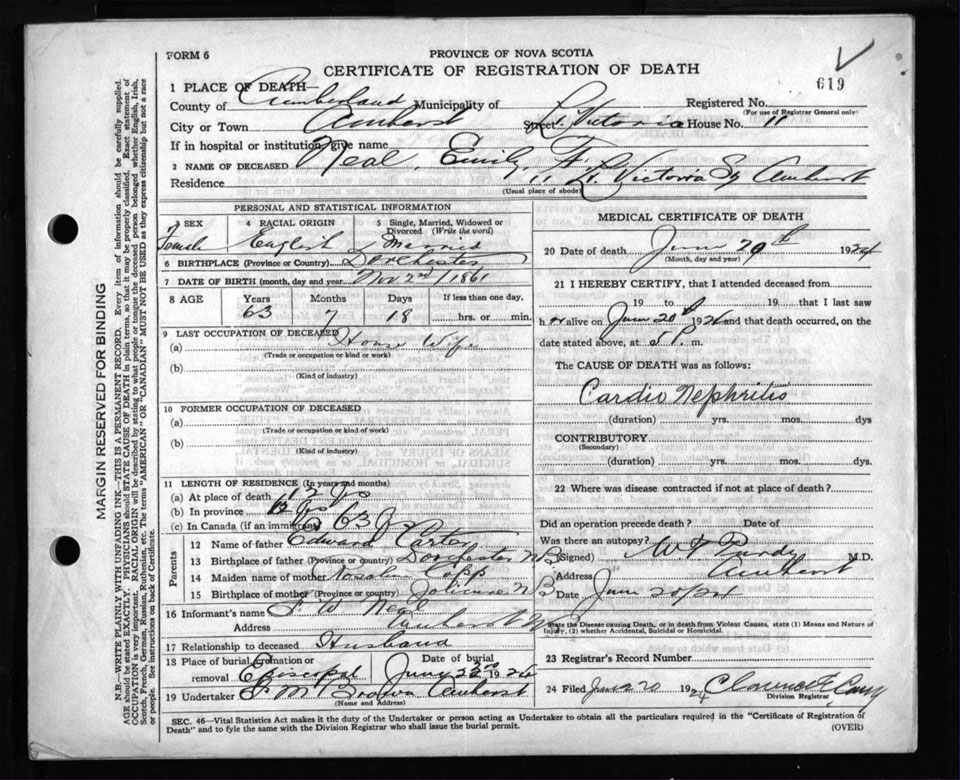 FORM 6
PROVINCE OF NOVA SCOTIA
CERTIFICATE OF REGISTRATION OF DEATH
619
1 PLACE OF DEATH—
County of Cumberland Municipality of Registered No.
(For use of Registrar General only)
City or Town Amherst Street Victoria House No. 11
If in hospital or institution, give name
2 NAME OF DECEASED Neal, Emily
Residence 11 Victoria St Amherst
(Usual place of abode)
PERSONAL AND STATISTICAL INFORMATION
3 SEX 4 RACIAL ORIGIN 5 Single, Married, Widowed or Divorced (Write the word)
Female English Married
6 BIRTHPLACE (Province or Country) Dorchester
7 DATE OF BIRTH (month, day and year) Nov 2nd 1861
8 AGE Years Months Days If less than one day,
63 7 18 hrs. or min.
9 LAST OCCUPATION OF DECEASED
(a) House Wife
(Trade or occupation or kind or work)
(b)
(Kind of industry)
10 FORMER OCCUPATION OF DECEASED
(a)
(Trade or occupation or kind of work)
(b)
(Kind of industry)
11 LENGTH OF RESIDENCE (In years and months)
(a) At place of death
(b) In province
(c) In Canada (if an immigrant) 63
Parents
12 Name of father Edward Carter
13 Birthplace of father (Province or country) Dorchester NB
14 Maiden name of mother
15 Birthplace of mother (Province or country) NB
16 Informant's name F W Neal
Address Amherst
17 Relationship to deceased Husband
18 Place of burial, cremation or removal Episcopal Date of burial 1924
19 Undertaker Amherst
(Name and Address)
MEDICAL CERTIFICATE OF DEATH
20 Date of death June 1924
(Month, day and year)
21 I HEREBY CERTIFY, that I attended deceased from
19 to 19 that I last saw
her alive on June 20th 1924 and that death occurred, on
date stated above, at 5 P. m.
The CAUSE OF DEATH was as follows:
Cardio Nephritis
(duration) yrs. mos. dys
CONTRIBUTORY
(Secondary)
(duration) yrs. mos. dys.
22 Where was disease contracted if not at place of death?
Did an operation precede death? Date of
Was there an autopsy?
(Signed) Purdy M.D.
Address Amherst
Date June 20/24
State the Disease causing Death, or in death from Violent Causes, state (1) Means and Nature of Injury, (2) whether Accidental, Suicidal or Homicidal.
23 Registrar's Record Number
24 Filed June 20 1924 Clarence
Division Registrar
SEC. 46—Vital Statistics Act makes it the duty of the Undertaker or person acting as Undertaker to obtain all the particulars required in the "Certificate of Registration of
Death" and to fyle the same with the Division Registrar who shall issue the burial permit.
(OVER)
MARGIN RESERVED FOR BINDING
N.B.—WRITE PLAINLY WITH UNFADING INK—THIS IS A PERMANENT RECORD. Every item of information should be carefully supplied.
AGE should be stated EXACTLY. PHYSICIANS should STATE CAUSE OF DEATH in plain terms, so that it may be properly classified. Exact statement of
OCCUPATION is very important. RACIAL ORIGIN will be described by stating to what people or tongue the deceased person belonged whether English, Irish,
Scotch, French, German, Russian, Ruthenian, etc. The terms "AMERICAN" OR "CANADIAN" MUST NOT BE USED as they express citizenship but not a race
or people. See instructions on back of Certificate.